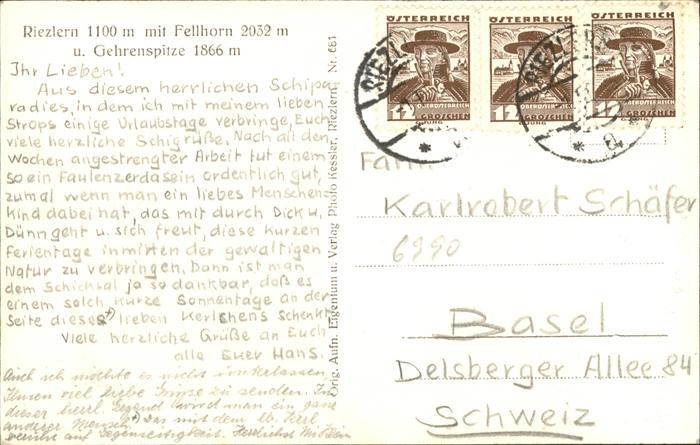 Riezlern 1100 m mit Fellhorn 2032 m
u. Gehrenspitze 1866 m
Ihr Lieben!
Aus diesem herrlichen Schipa-
radies, in dem ich mit meinem lieben
Strops einige Urlaubstage verbringe, Euch
viele herzliche Schigrüße. Nach all den
Wochen angestrengter Arbeit tut einem
so ein Faulenzerdasein ordentlich gut,
zumal wenn man ein liebes Menschen-
kind dabei hat, das mit durch Dick u.
Dünn geht u. sich freut, diese kurzen
Ferientage inmitten der gewaltigen
Natur zu verbringen. Dann ist man
dem Schicksal ja so dankbar, daß es
einem solch kurze Sonnentage an der
Seite dieses +) lieben Kerlchens schenkt
Viele herzliche Grüße an Euch
alle Euer Hans.
Auch ich möchte es nicht unterlassen
Ihnen viel liebe Grüsse zu senden. In
dieser herrl. Gegend wird man ein ganz
anderer Mensch. +) Das mit dem lb. Kerl
beruht auf Gegenseitigkeit. Herzlichst
Orig. Aufn. Eigentum u. Verlag Photo Kessler, Riezlern, Nr. 681
ÖSTERREICH
OBERÖSTERREICH
12 GROSCHEN
ÖSTERREICH
OBERÖSTERREICH
12 GROSCHEN
ÖSTERREICH
OBERÖSTERREICH
12 GROSCHEN
RIEZL
Fam.
Karlrobert Schäfer
6990
Basel
Delsberger Allee 84
Schweiz